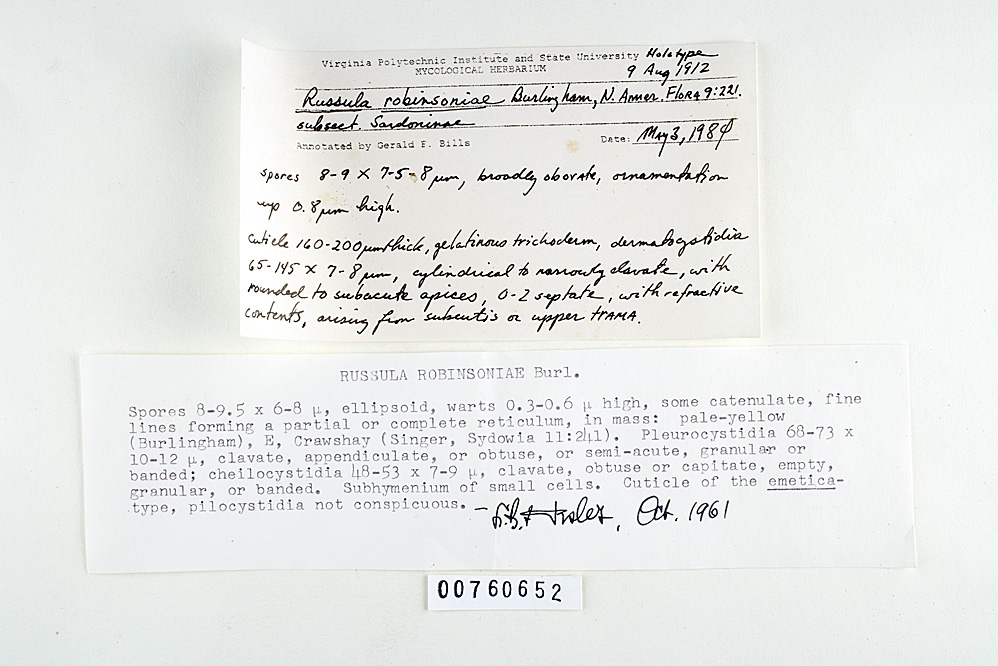 Virginia Polytechnic Institute and State University Holotype
MYCOLOGICAL HERBARIUM 9 Aug 1912
Russula robinsoniae Burlingham, N. Amer. Flora 9:221.
subsect. Sardoninae
Annotated by Gerald F. Bills Date: May 3, 1984
spores 8-9 X 7-5-8 µm, broadly obovate, ornamentation
up 0.8 µm high.
cuticle 160-200 µm thick, gelatinous trichoderm, dermatocystidia
65-145 X 7-8 µm, cylindrical to narrowly clavate, with
rounded to subacute apices, 0-2 septate, with refractive
contents, arising from subcutis or upper trama.
RUSSULA ROBINSONIAE Burl.
Spores 8-9.5 x 6-8 µ, ellipsoid, warts 0.3-0.6 µ high, some catenulate, fine
lines forming a partial or complete reticulum, in mass: pale-yellow
(Burlingham), E, Crawshay (Singer, Sydowia 11:241). Pleurocystidia 68-73 x
10-12 µ, clavate, appendiculate, or obtuse, or semi-acute, granular or
banded; cheilocystidia 48-53 x 7-9 µ, clavate, obtuse or capitate, empty,
granular, or banded. Subhymenium of small cells. Cuticle of the emetica-
type, pilocystidia not conspicuous. - Oct. 1961
00760652